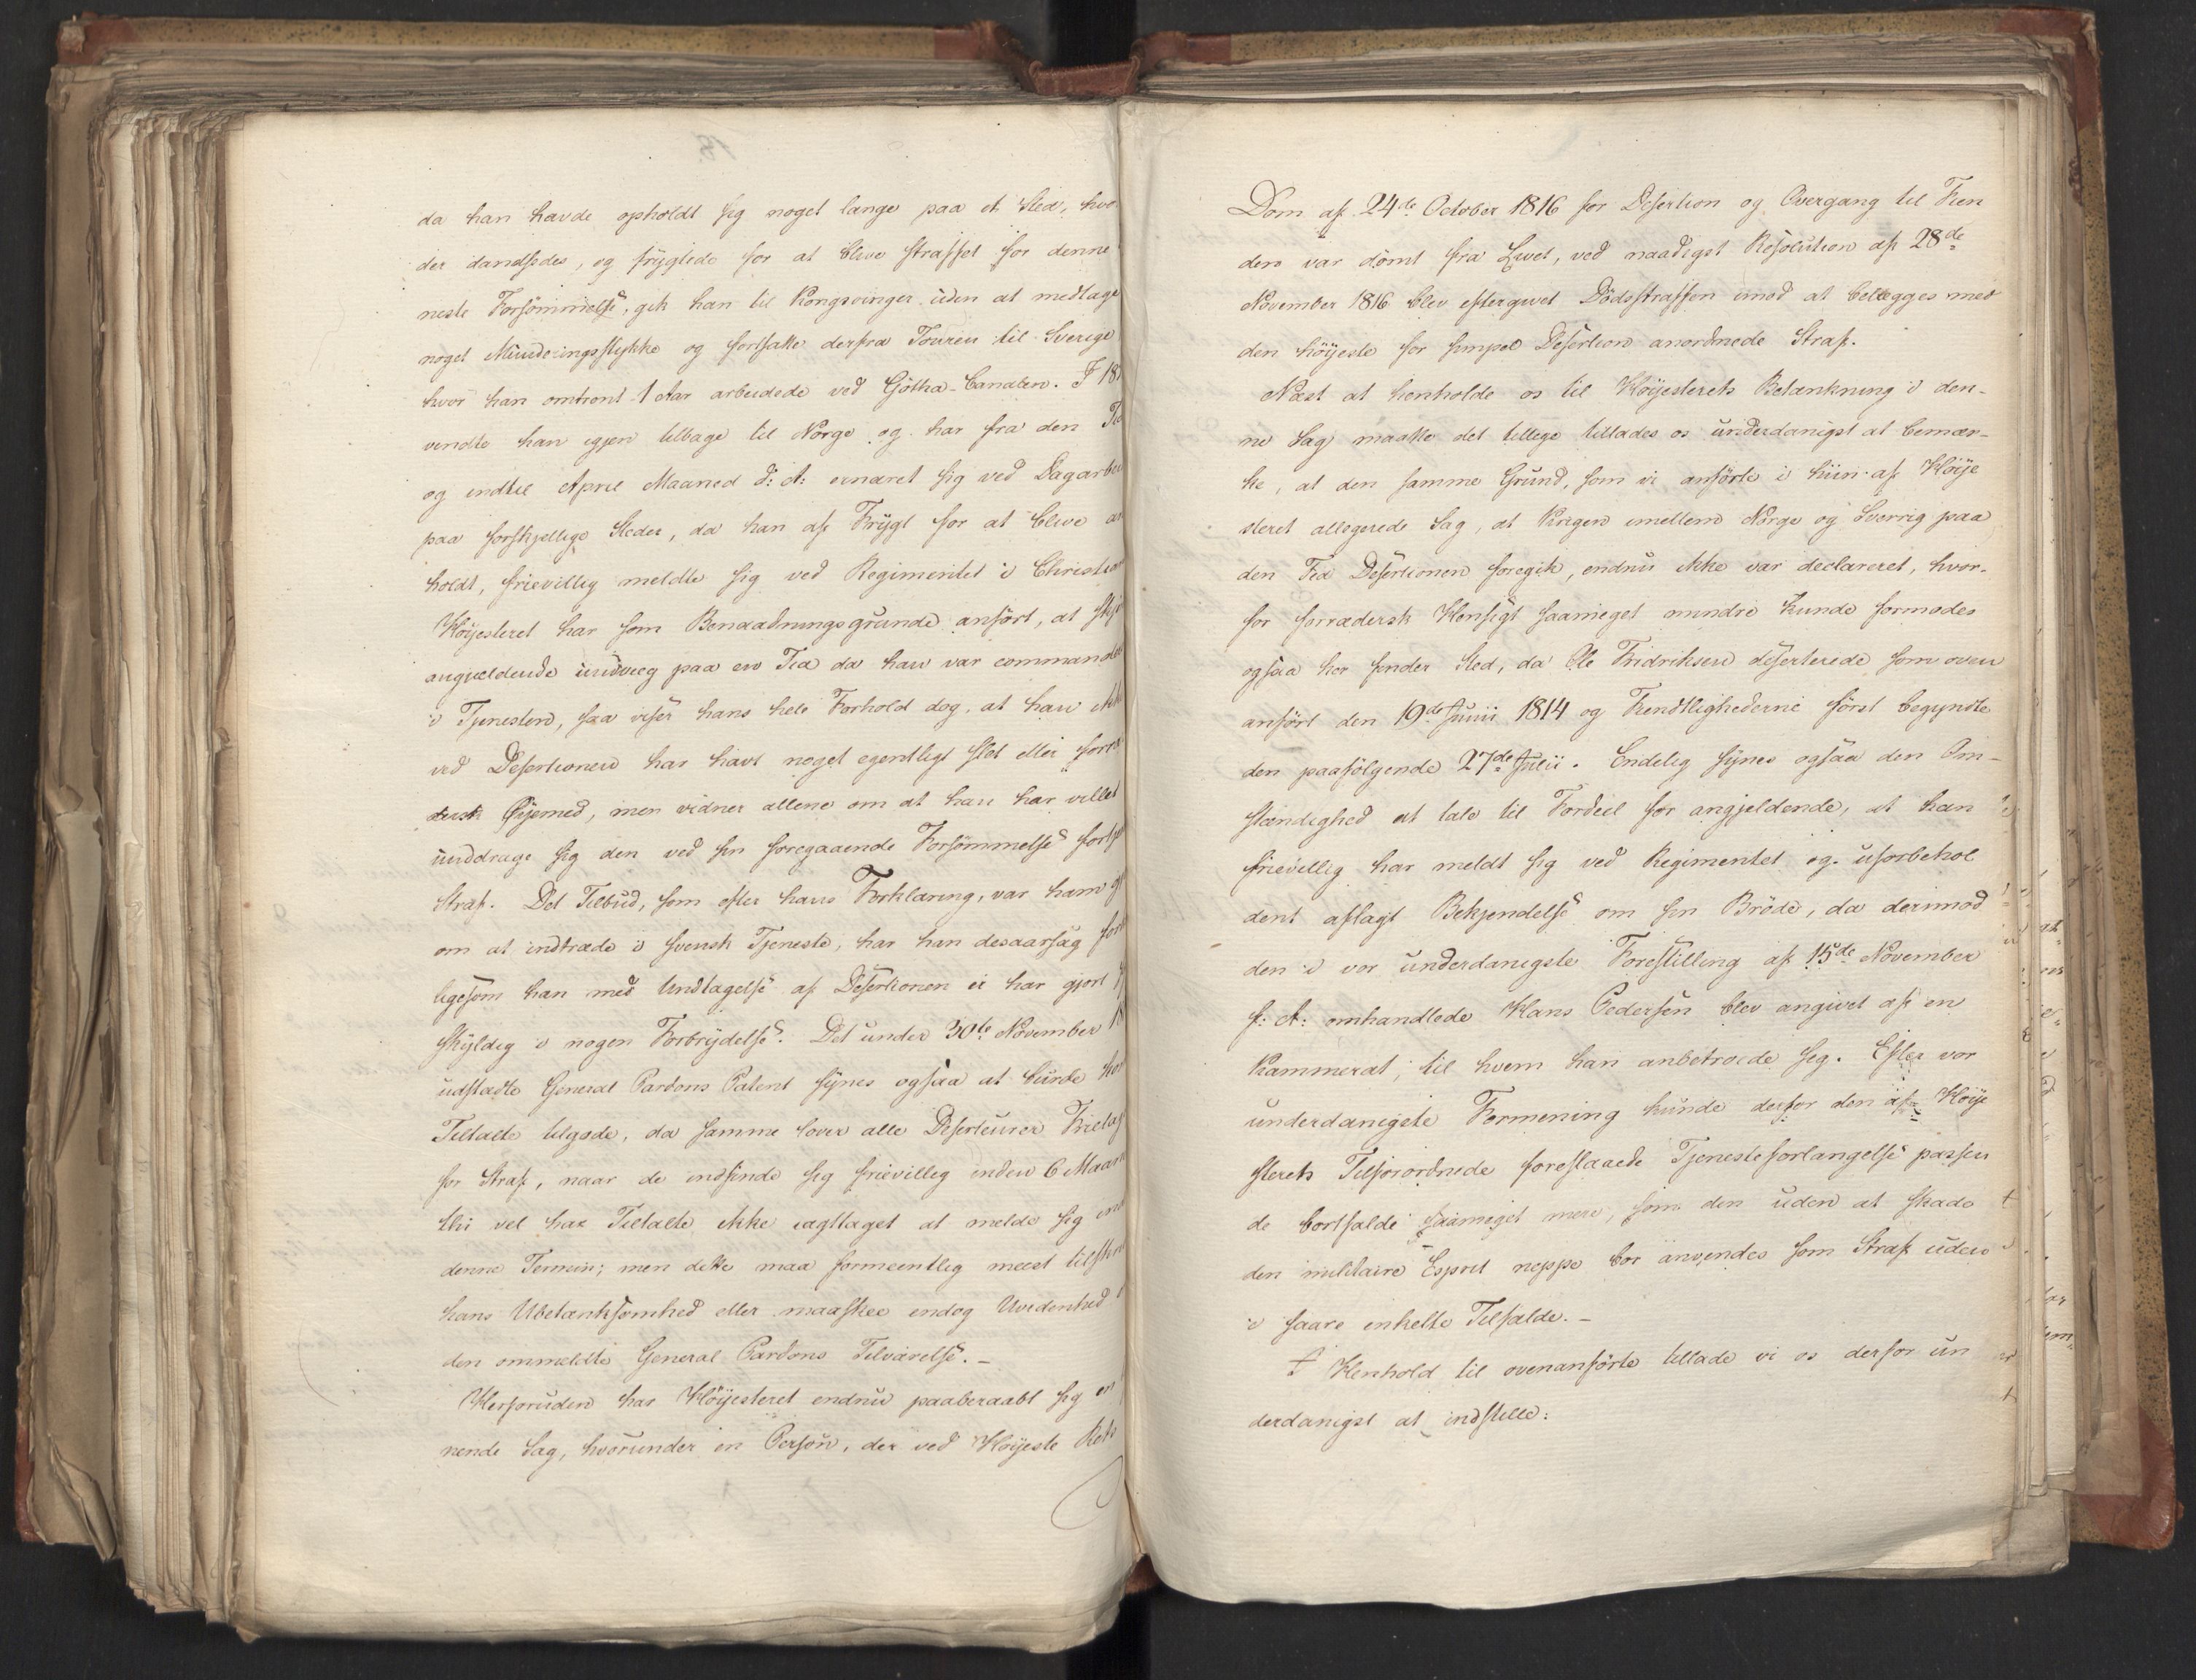 da han havde opholdt sig noget længe paa et Sted, hvo
der dandsedes, og frygtede for at blive straffet for denne
neste Forsömmelse, gik han til Kongsvinger uden at medtage
noget Munderingsstykke og fortsatte derfra Touren til Sverige
hvor han omtrent 1 Aar arbeidede ved Götha-Canalen. I 181
vendte han igjen tilbage til Norge og har fra den Tid
og indtil April Maaned d: A: ernæret sig ved Dagarbei
paa forskjellige Steder, da han af Frygt for at blive an
holdt, frievillig meldte sig ved Regimentet i Christian
Höyesteret har som Benaadningsgrunde anfört, at skj
angjældende undveeg paa en Tid da han var commande
i Tjenesten, saa viser hans hele Forhold dog, at han ikke
ved Desertionen har havt noget egentligt slet eller forræ
dersk Öyemed, men vidner allene om at han har villet
unddrage sig den ved sin foregaaende Forsömmelse fortj
Straf. Det Tilbud, som efter hans Forklaring, var ham gj
om at indtræde i svensk Tjeneste, har han desaarsag fork
ligesom han med Undtagelse af Desertionen ei har gjort
skyldig i nogen Forbrydelse. Det under 30te November 18
udstædte General Pardons Patent synes ogsaa at burde kom
Tiltalte tilgode, da samme lover alle Deserteurer Frietag
for Straf, naar de indfinde sig frievillig inden 6 Maan
thi vel har Tiltalte ikke iagttaget at melde sig ind
denne Termin; men dette maa formeentlig meest tilskri
hans Ubetænksomhed eller maaskee endog Uvidenhed
den ommeldte General Pardons Tilværelse. –
Herforuden har Höyesteret endnu paaberaabt sig en
nende Sag, hvorunder en Person, der ved Höyeste Rets
Dom af 24de October 1816 for Desertion og Overgang til Fien
den var dömt fra Livet, ved naadigst Resolution af 28de
November 1816 blev eftergivet Dödsstraffen imod at belægges med
den höyeste for simpel Desertion anordnede Straf.
Næst at henholde os til Höyesterets Betænkning i den-
ne Sag maatte det tillige tillades os underdanigst at bemær-
ke, at den samme Grund, som vi anförte i hiin af Höye
steret allegerede Sag, at Krigen imellem Norge og Sverrig paa
den Tid Desertionen foregik, endnu ikke var declareret, hvor-
for forrædersk Hensigt saameget mindre kunde formodes
ogsaa her finder Sted, da Ole Fridriksen deserterede som oven
anfört den 19de Junii 1814 og Fiendtlighederne först begyndte
den paafölgende 27de Julii. Endelig synes ogsaa den Om-
stændighed at tale til Fordeel for angjeldende, at han
frievillig har meldt sig ved Regimentet og uforbehol
dent aflagt Bekjendelse om sin Bröde, da derimod
den i vor underdanigste Forestilling af 15de November
f: A: omhandlede Hans Pedersen blev angivet af en
Kammerat, til hvem han anbetroede sig. Efter vor
underdanigste Formening kunde derfor den af Höye
sterets Tilforordnede foreslaaede Tjenesteforlængelse passen
de bortfalde saameget mere, som den uden at skade
den militaire Esprit neppe bör anvendes som Straf uden
i saare enkelte Tilfælde. –
I Henhold til ovenanförte tillade vi os derfor un
derdanigst at indstille: